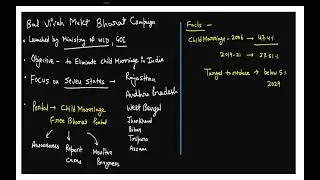 Bal Vivah Mukt Bharat Campaign
• Launched by Ministry of WCD, GOI
• Objective - to Eliminate Child Marriage in India
• Focus on Seven States → Rajasthan
Andhra Pradesh
West Bengal
Jharkhand
Bihar
Tripura
Assam
• Portal → Child Marriage
Free Bharat Portal
Awareness
Report Cases
Monitor Progress
Facts -
Child Marriage - 2006 → 47.4%
2019-21 → 23.3%
Target to reduce → below 5%
2029